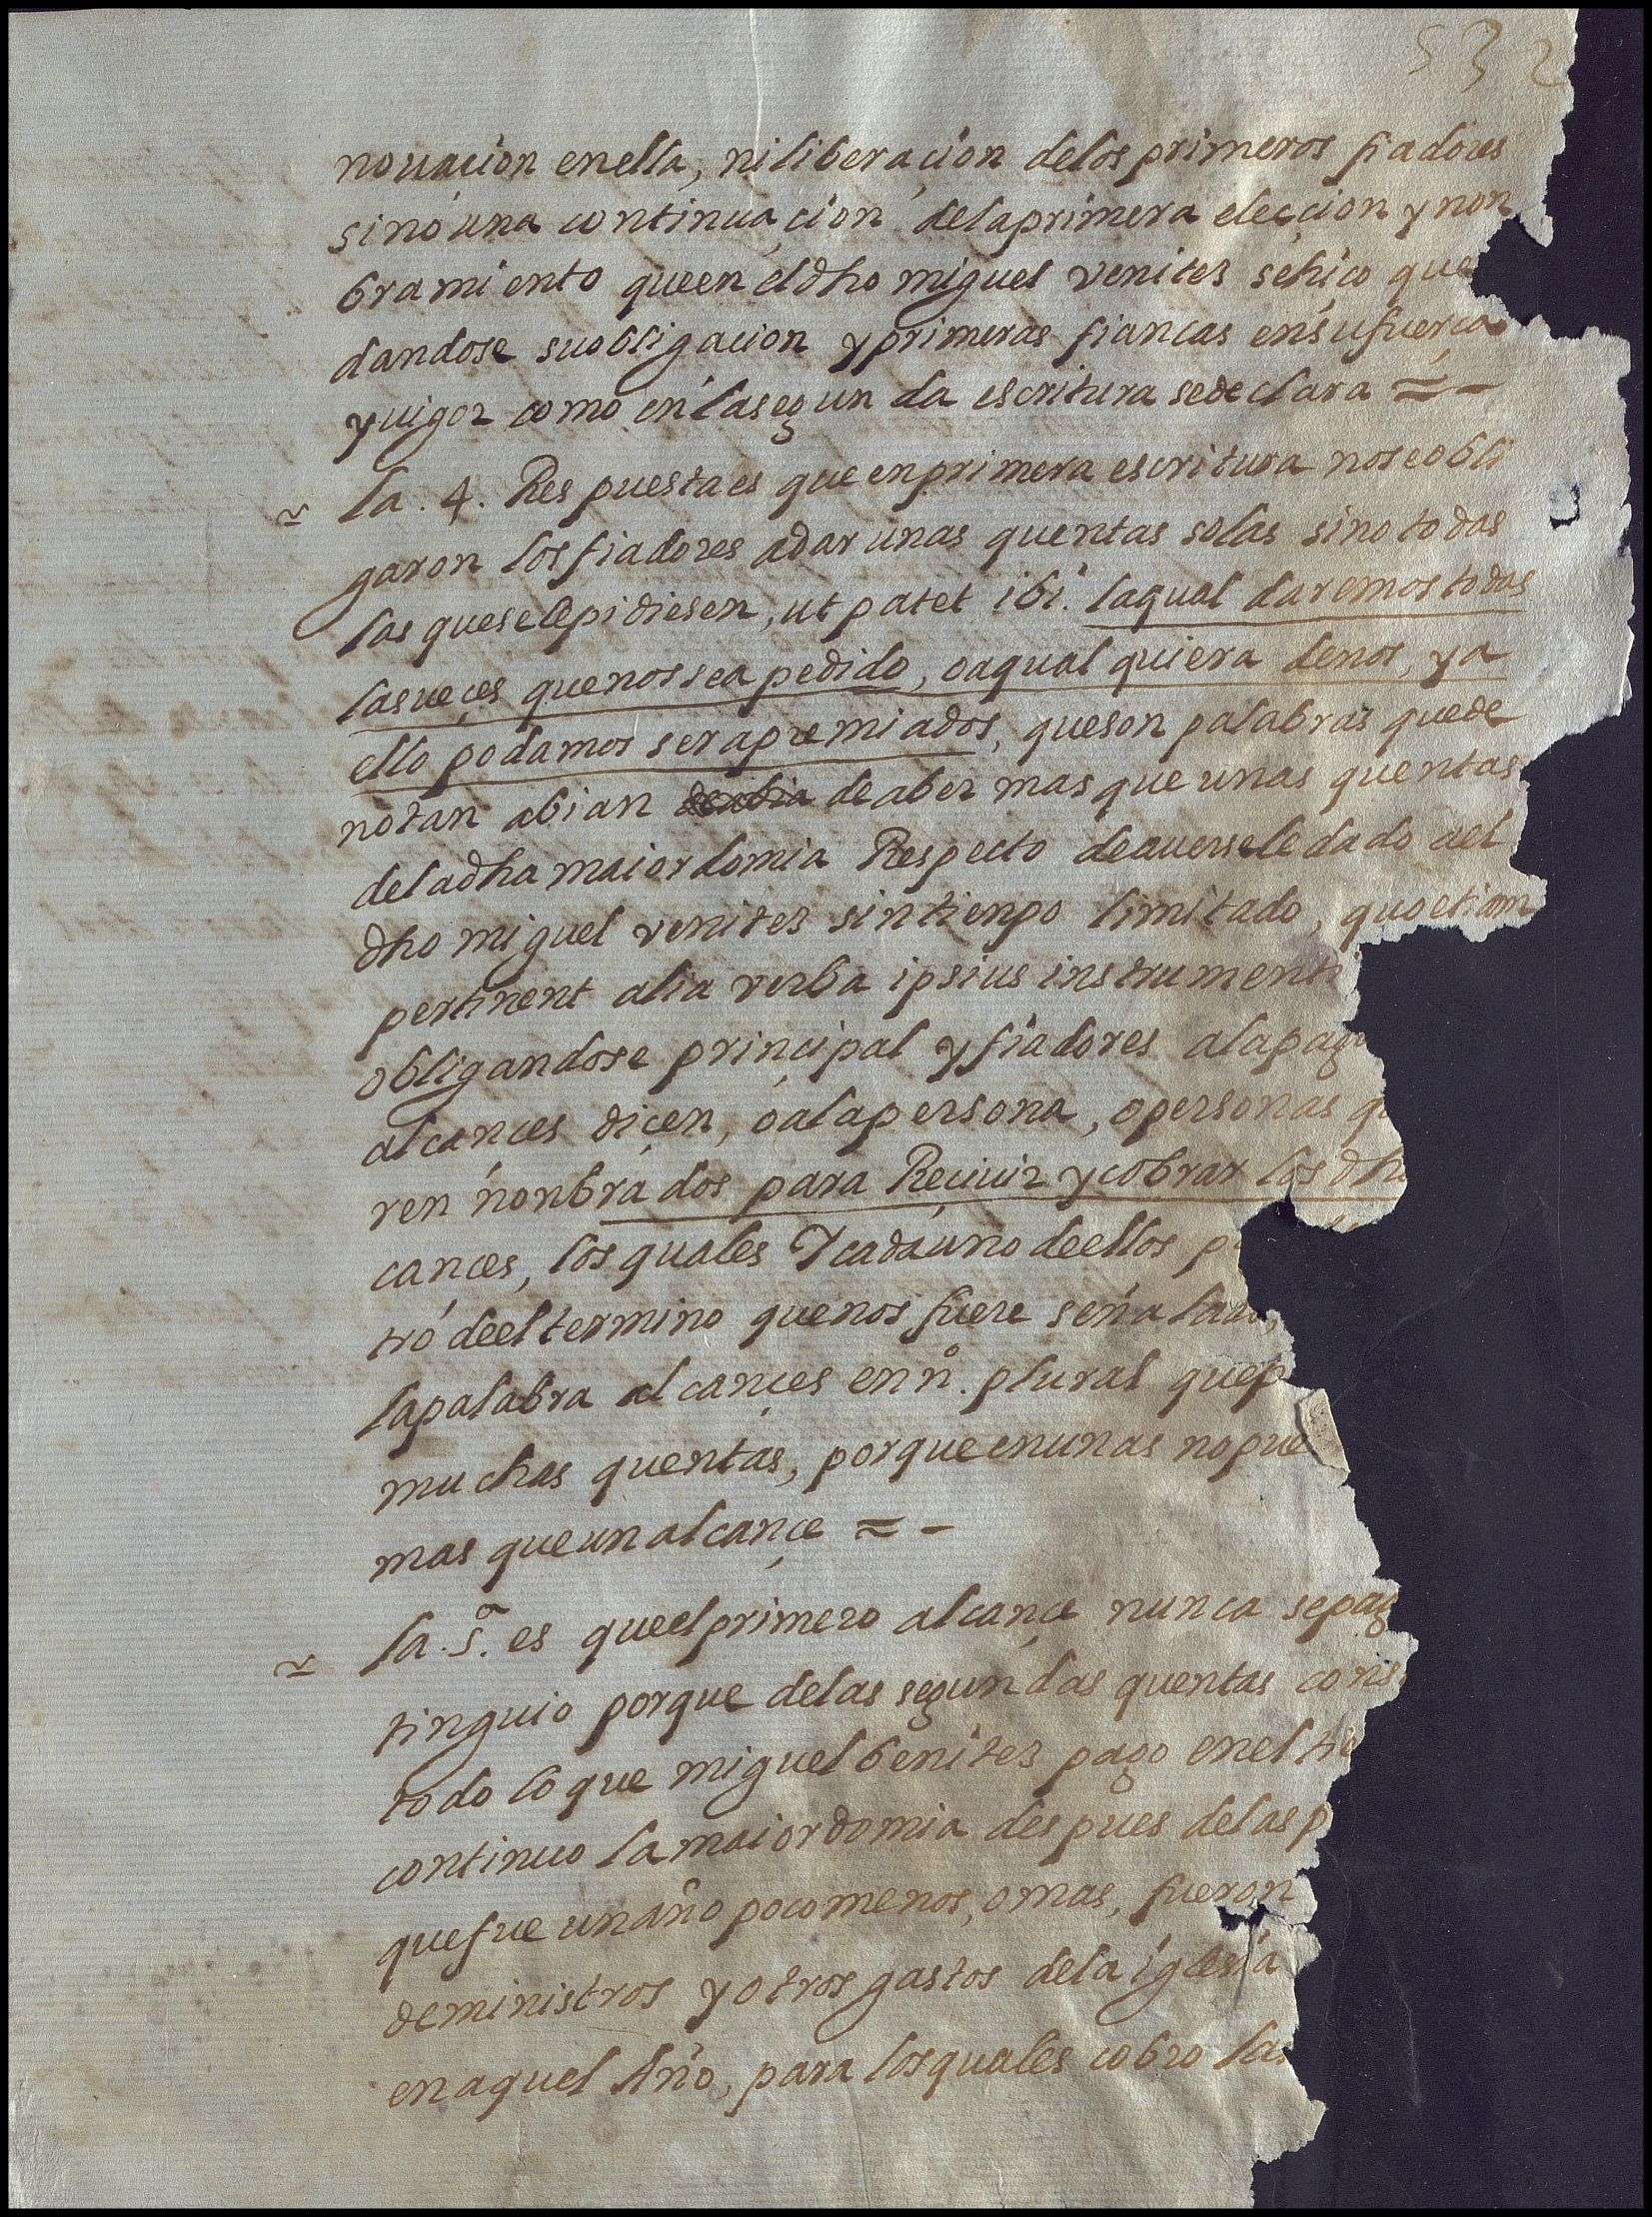 532
nouacion en ella, ni liberaçion de los primeros fiadores
sino una continuaçion de la primera elecçion y non
bramiento que en el dho miguel venites se hiço que
dandose su obligacion y primeras fiancas en su fuerça
y uigor como en la segunda escritura se declara = -
la. 4. Respuesta es que en primera escritura no se obli
garon los fiadores a dar unas quentas solas sino todas
las que se le pidiesen, ut patet ibi. la qual daremos todas
las ueçes que nos sea pedido, o a qual quiera de nos, y a
ello podamos ser apremiados, que son palabras que de
notan abian de aber mas que unas quentas
de la dha maiordomia Respecto de auersele dado a el
dho miguel venites sin tienpo limitado, quo etiam
pertinent alia verba ipsius instrumenti
obligandose prinçipal y fiadores a la pag
alcançes diçen, o a la persona, o personas q
ren nonbrados para Reçiuir y cobrar los dh
cances, los quales Y cada uno de ellos p
tro de el termino que nos fuere señalado,
la palabra alcançes en nº. plural que p
muchas quentas, porque en unas no pue
mas que un alcançe = -
la. 5ª. es que el primero alcançe nunca se pag
tinguio porque de las segundas quentas cons
todo lo que miguel benites pago en el ti
continuo la maiordomia despues de las p
que fue un año poco menos, o mas, fueron
de ministros y otros gastos de la iglesia
en aquel Año, para los quales cobro las